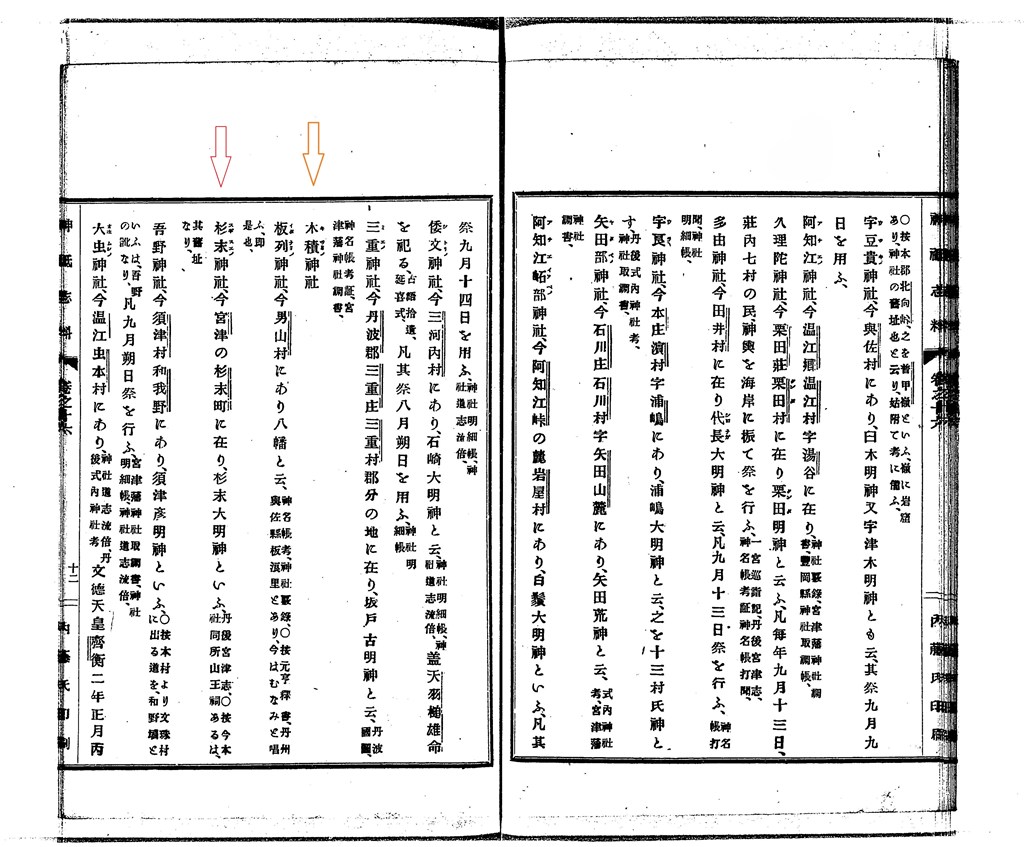 〇按本郡北向峠、之を首甲嶺といふ、嶺に岩窟
あり、神社の舊址也と云り、姑附て考に備ふ、
宇豆貴神社、今與佐村にあり、臼木明神又宇津木明神とも云、其祭九月九
日を用ふ、
阿知江神社、今温江郷温江村字湯谷に在り、神社覈錄、宮津藩神社調書、豐岡縣神社取調帳、
久理陀神社、今栗田莊栗田村に在り栗田明神と云ふ、凡毎年九月十三日、
莊內七村の民、神輿を海岸に振て祭を行ふ、一宮巡詣記丹後宮津志、神名帳考証神名帳打聞、
多由神社、今田井村に在り代長大明神と云、凡九月十三日祭を行ふ、神名帳打
聞、神社明細帳、
宇良神社、今本庄濱村字浦嶋にあり、浦嶋大明神と云、之を十三村氏神と
す、丹後式內神社考、神社取調書、
矢田部神社、今石川庄石川村字矢田山麓にあり、矢田荒神と云、式內神社考、宮津藩
神社調書、
阿知江峴部神社、今阿知江峠の麓岩屋村にあり、白鬚大明神といふ、凡其
祭九月十四日を用ふ、神社明細帳、神社道志流倍、
倭文神社、今三河內村にあり、石崎大明神と云、神社明細帳、神社道志流倍、蓋天羽槌雄命
を祀る、古語拾遺、延喜式、凡其祭八月朔日を用ふ、神社明細帳
三重神社、今丹波郡三重庄三重村郡分の地に在り、坂戶古明神と云、丹波國圖、
神名帳考証、宮津藩神社調書、
木積神社
板列神社、今男山村にあり八幡と云、神名帳考、神社覈錄、〇按元亨釋書、丹州與佐縣板浪里とあり、今はむなみと唱
ふ、即是也、
杉末神社、今宮津の杉末町に在り、杉末大明神といふ、丹後宮津志、〇按今本社同所山王祠あるは、
其舊址なり、
吾野神社、今須津村和我野にあり、須津彥明神といふ、〇按本村より文珠村に出る道を、和野墳と
いふは、吾野の訛なり、凡九月朔日祭を行ふ、宮津藩神社取調書、神社明細帳、神社道志流倍、
大虫神社、今温江虫本村にあり、神社道志流倍、丹後式內神社考文德天皇齊衡二年正月丙
神祇志料
卷之十六
十二
內藤氏印刷